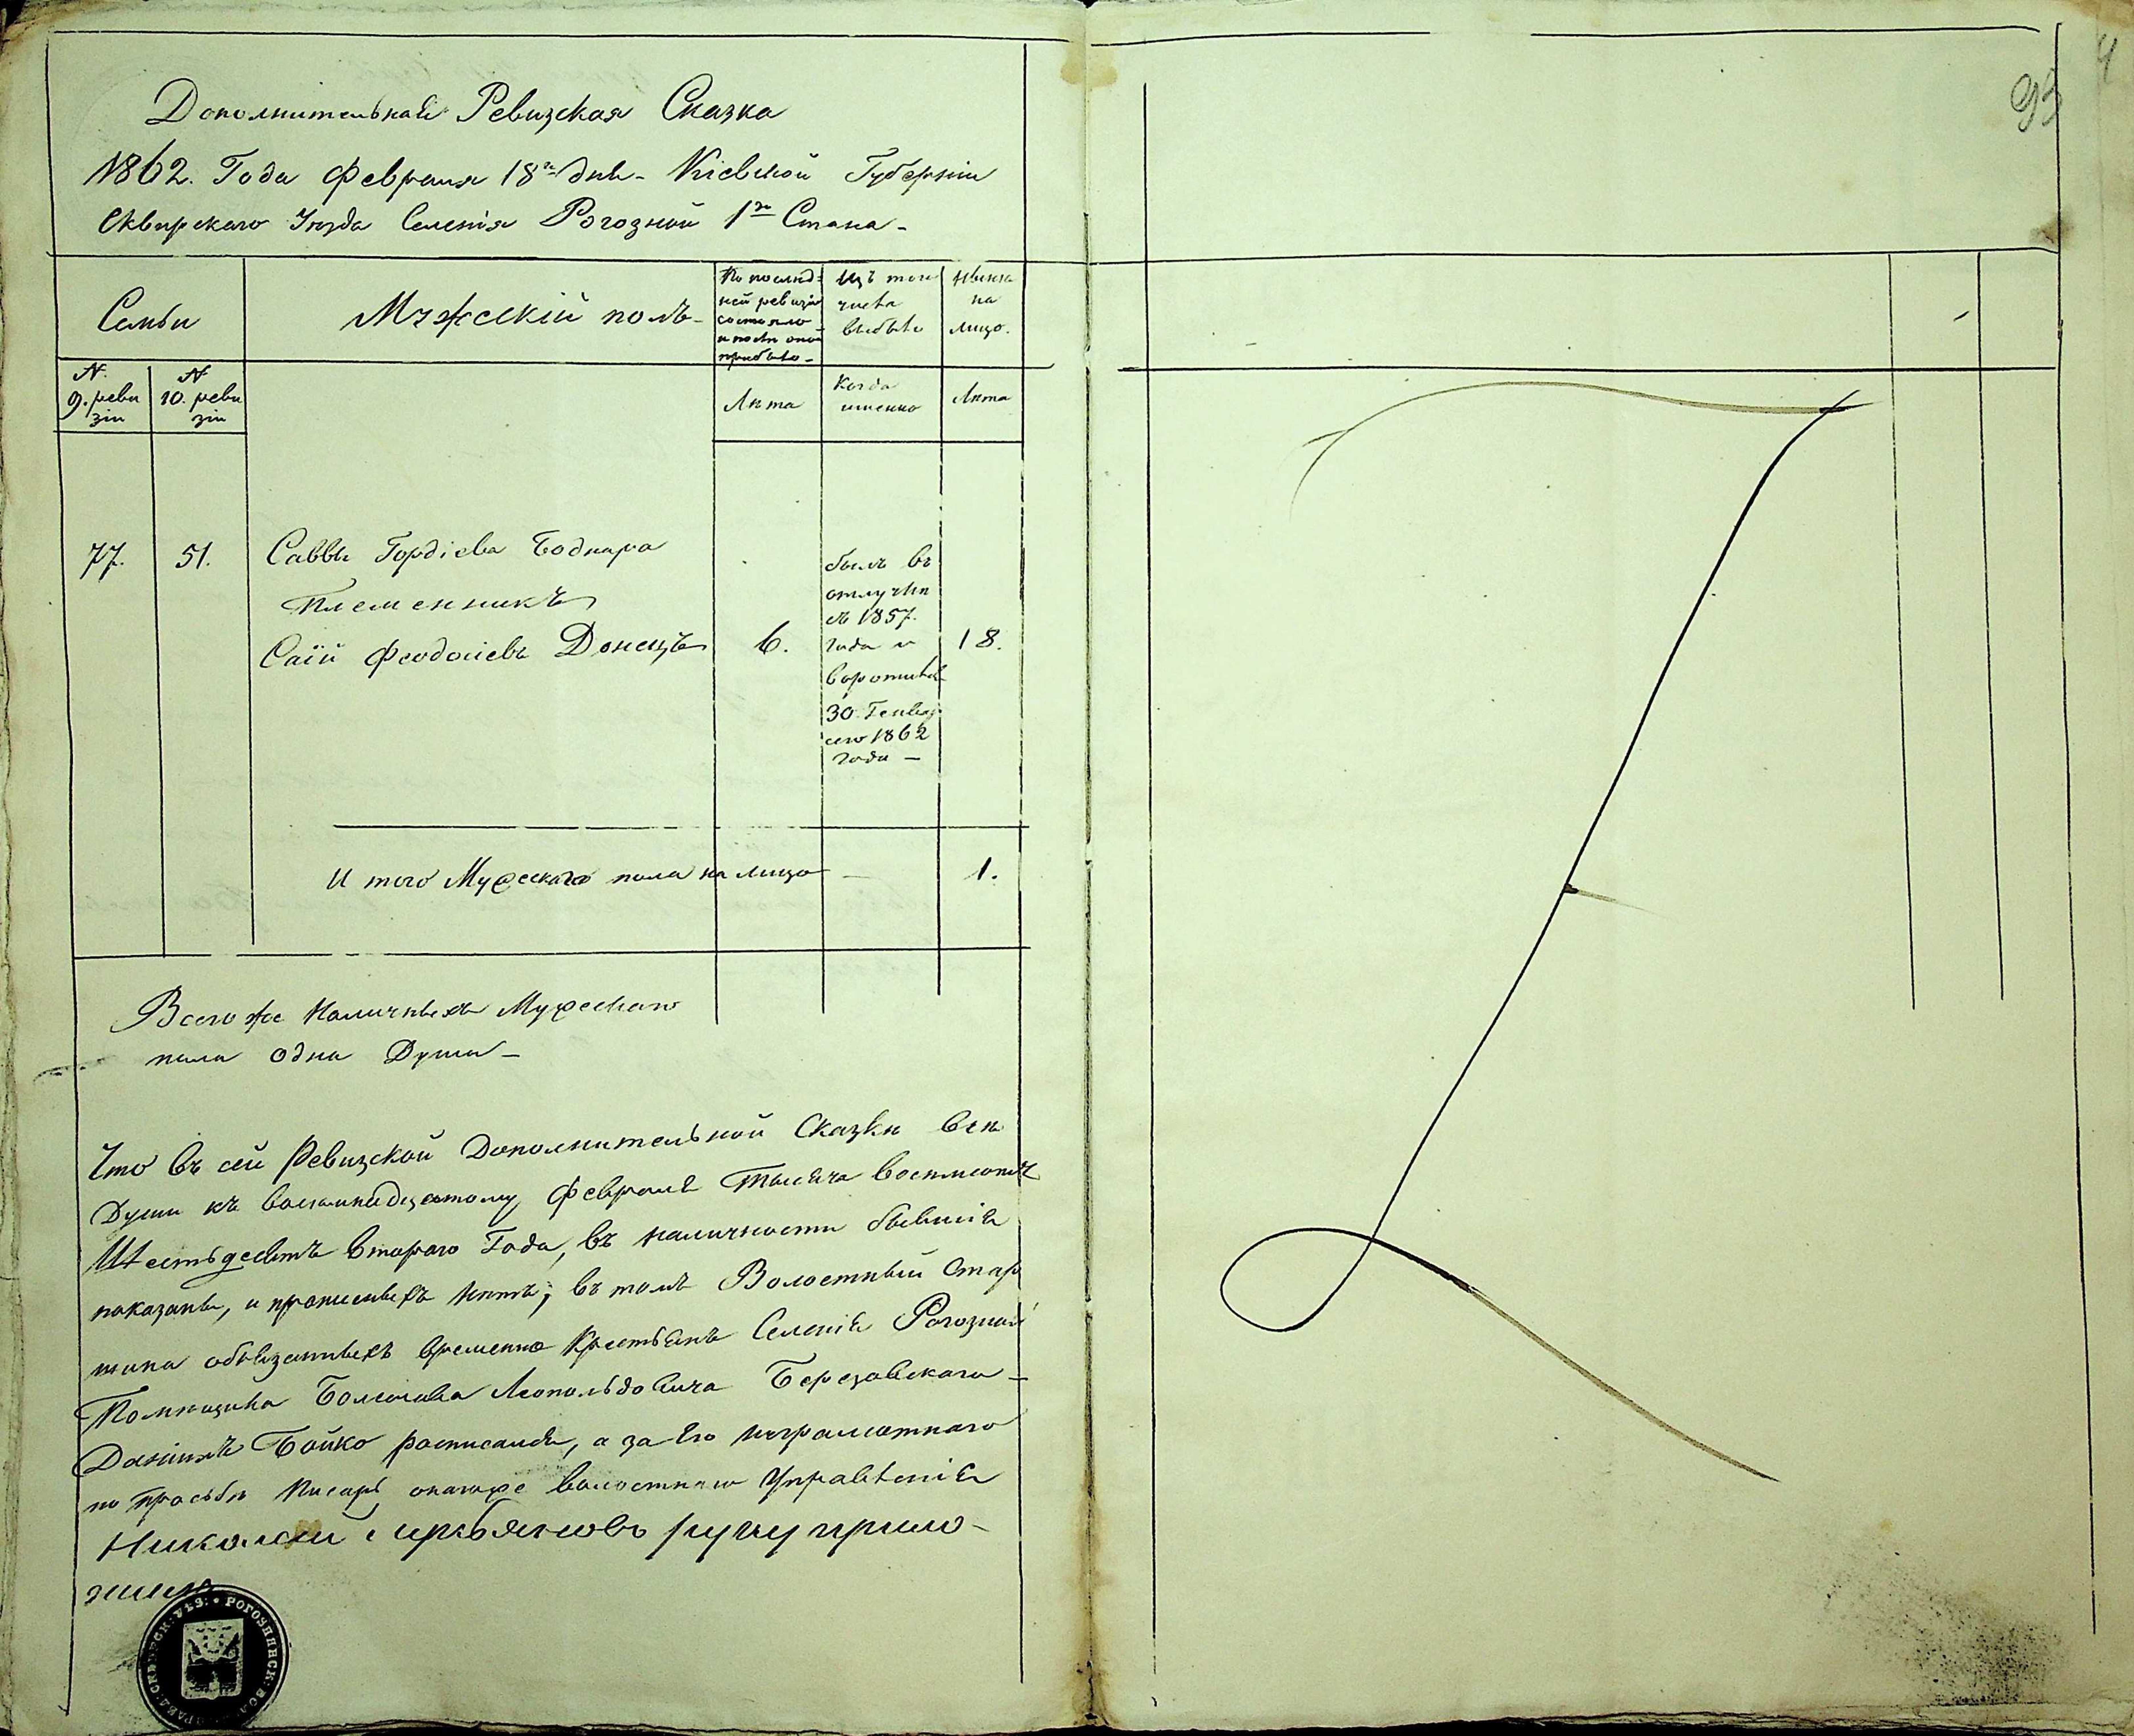 Дополнительная Ревизская Сказка
1862. Года Февраля 18го дня - Кіевской Губерніи
Сквирскаго Уезда Селенія Рогозной 1го Стана -
Семьи
Мужескій полъ -
По послед-
ней ревизіи
состояло
и после оной
прибыло -
Изъ того
числа
выбыло
Ныне
на
лицо.
№
9. реви
зіи
№
10. реви
зіи
Лета
Когда
именно
Лета
77.
51.
Саввы Гордіева Боднара
Племенникъ
Саій Феодосіевъ Донецъ
6.
былъ въ
отлучке
съ 1857.
года и
воротился
30. Генвар
сего 1862
года -
18.
И того Мужескаго пола на лицо -
1.
Всего же Наличныхъ Мужескаго
пола одна Душа -
Что въ сей Ревизской Дополнительной Сказки все
Души къ восьмнадцатому Февраля Тысяча восемьсотъ
Шестьдесятъ втораго Года, въ наличности бывшія
показаны, и прописныхъ нетъ, въ томъ Волостный Стар
шина обязанныхъ временно Крестьянъ Селенія Рогозной
Помещика Болеслава Леопольдовича Березовскаго -
Даніилъ Бойко росписался, а за Его неграмотнаго
по просьбе Писарь онагоже волостнаго Управленія
Николай руку прило-
жилъ
93
4